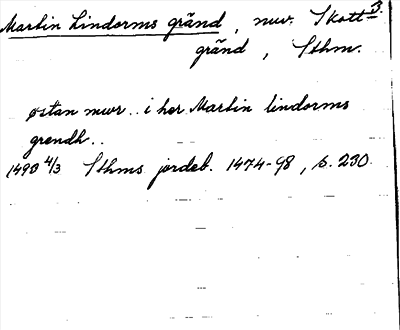 Martin Lindorms gränd, nuv. Skott-
3.
gränd, Sthm.
østan mwr .. i her Martin lindorms
grendh ..
1490 4/3 Sthms jordeb. 1474-98, s. 230.